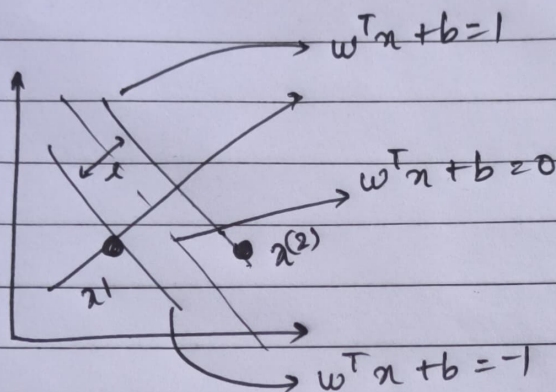 w^T x + b = 1
w^T x + b = 0
x^(2)
x^1
w^T x + b = -1